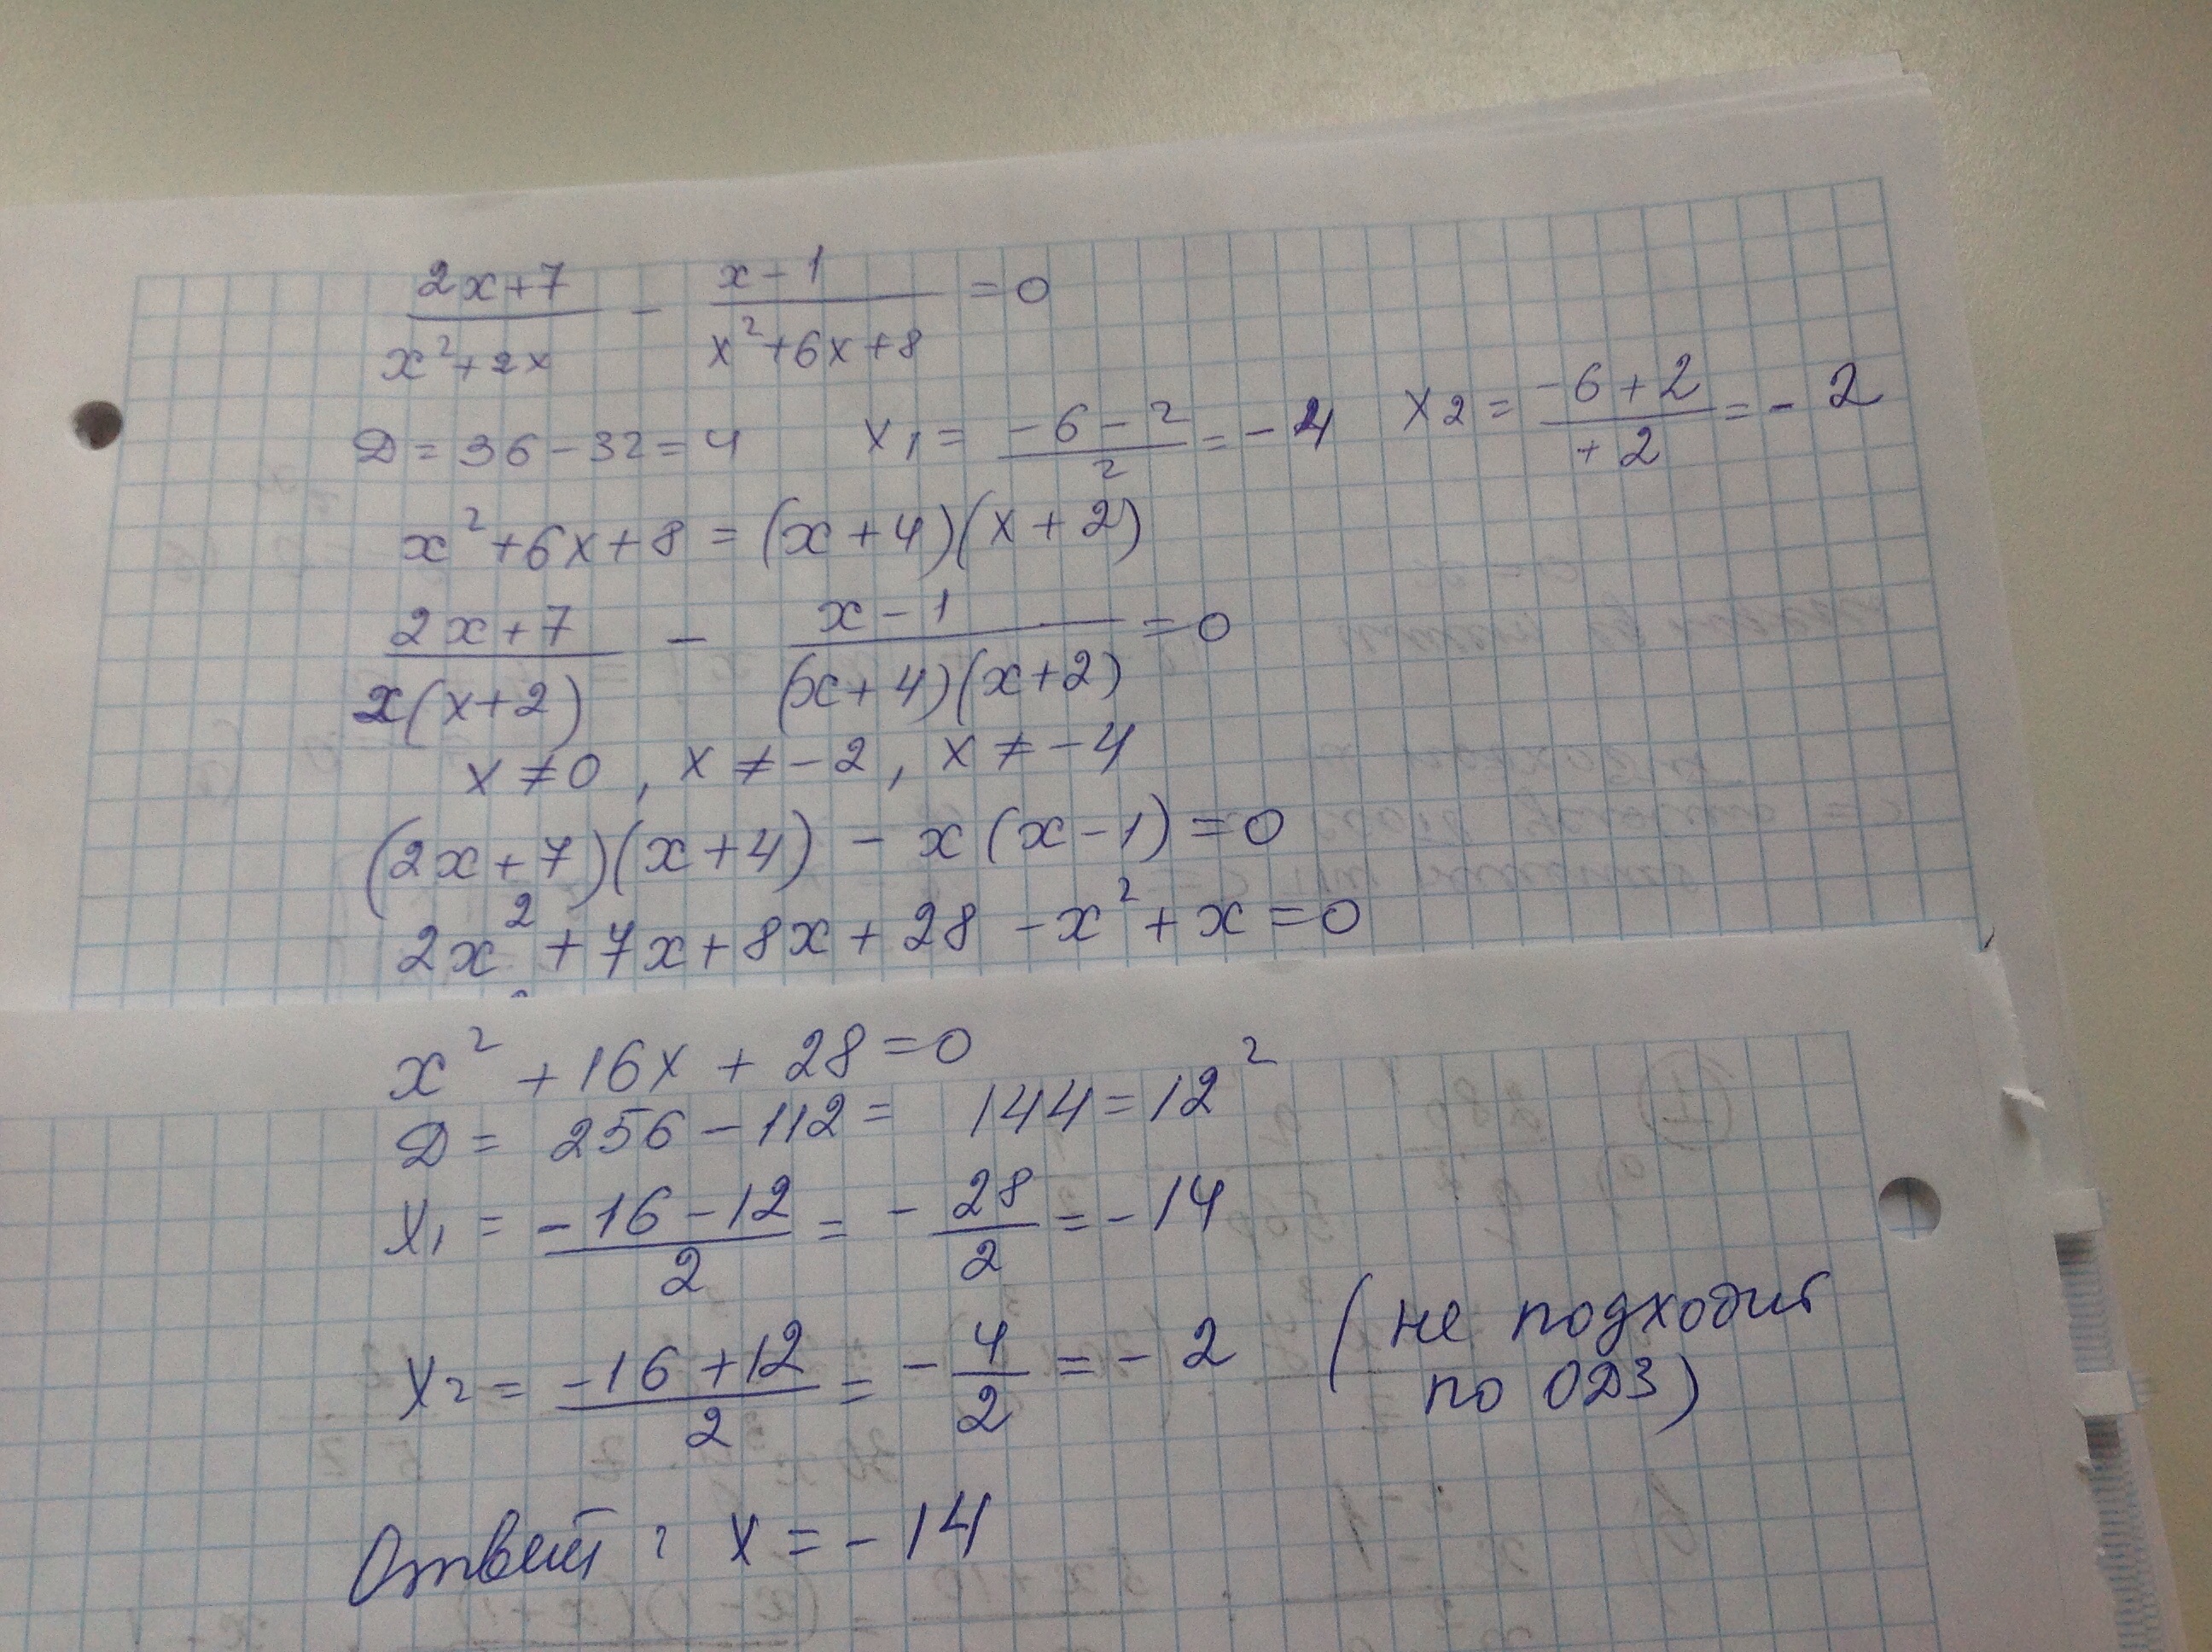 (2x+7)/(x²+2x) - (x-1)/(x²+6x+8) = 0
D = 36-32 = 4 x₁ = (-6-2)/2 = -4 x₂ = (-6+2)/(+2) = -2
x²+6x+8 = (x+4)(x+2)
(2x+7)/(x(x+2)) - (x-1)/((x+4)(x+2)) = 0
x≠0, x≠-2, x≠-4
(2x+7)(x+4) - x(x-1) = 0
2x²+7x+8x+28-x²+x=0
x²+16x+28=0
D = 256-112 = 144 = 12²
x₁ = (-16-12)/2 = -28/2 = -14
x₂ = (-16+12)/2 = -4/2 = -2 (не подходит
по ОДЗ)
Ответ: x = -14